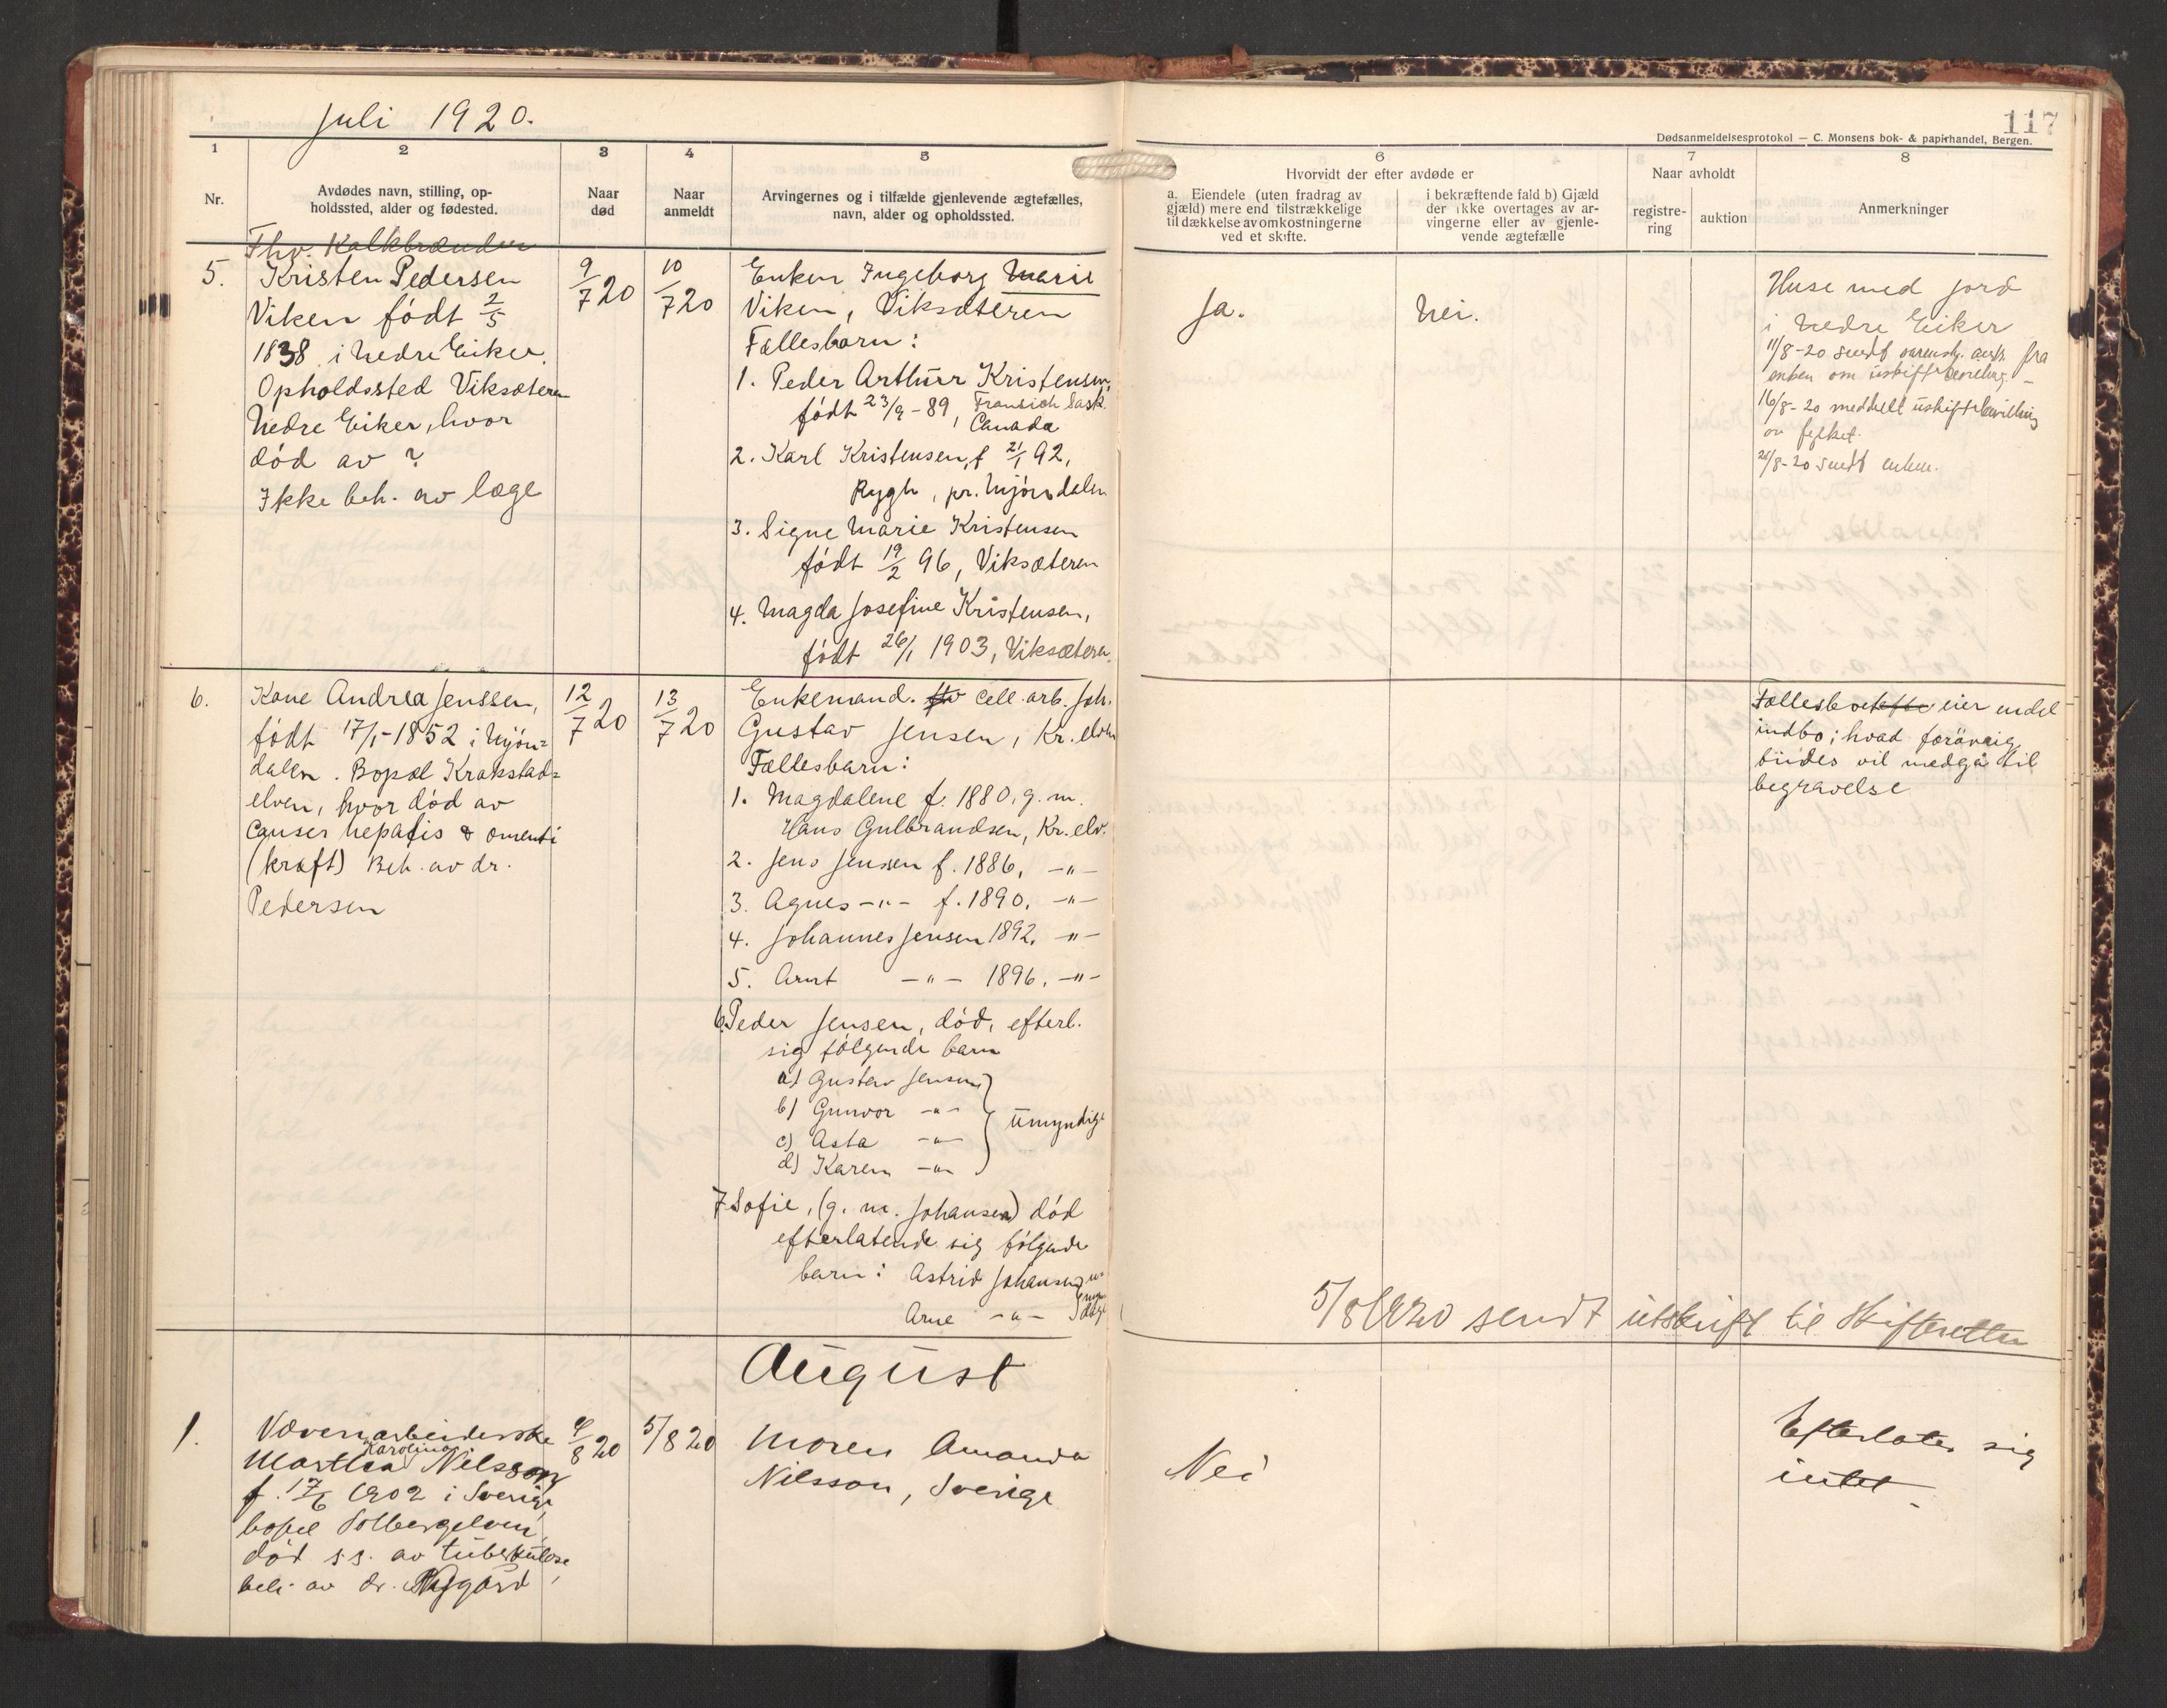 Juli 1920.
117
Dødsanmeldelsesprotokol — C. Monsens bok- & papirhandel, Bergen.
1
2
3
4
5
6
7
8
Nr.
Avdødes navn, stilling, op-
holdssted, alder og fødested.
Naar
død
Naar
anmeldt
Arvingernes og i tilfælde gjenlevende ægtefælles,
navn, alder og opholdssted.
Hvorvidt der efter avdøde er
a. Eiendele (uten fradrag av
gjæld) mere end tilstrækkelige
til dækkelse av omkostningerne
ved et skifte.
i bekræftende fald b) Gjæld
der ikke overtages av ar-
vingerne eller av gjenle-
vende ægtefælle
Naar avholdt
registre-
ring
auktion
Anmerkninger
Fhv. Kalkbrænder
5.
Kristen Pedersen
Viken født 2/5
1838 i Nedre Eiker.
Opholdssted Viksæteren
Nedre Eiker, hvor
død av ?
Ikke beh. av læge
9/7 20
10/7 20
Enken Ingeborg Marie
Viken, Viksæteren
Fællesbarn:
1. Peder Arthur Kristensen,
født 23/9-89, Sask.
Canada
2. Karl Kristensen, f 21/1 92,
Rygh, pr. Mjøndalen
3. Signe Marie Kristensen
født 19/2 96, Viksæteren
4. Magda Josefine Kristensen,
født 26/1 1903, Viksæteren.
Ja.
Nei.
Huse med jord
i Nedre Eiker
11/8-20 sendt ansk. fra
enken om uskiftebevilling. –
16/8-20 meddelt uskiftebevilling
av fylket.
26/8-20 sendt enken.
6.
Kone Andrea Jenssen,
født 17/5-1852 i Mjøn=
dalen. Bopæl Krokstad=
elven, hvor død av
Cancer hepatis & omenti
(kræft) Beh. av dr.
Pedersen
12/7 20
13/7 20
Enkemand. fhv cell. arb. Joh.
Gustav Jensen, Kr. elven
Fællesbarn:
1. Magdalene f. 1880, g. m.
Hans Gulbrandsen, Kr. elv.
2. Jens Jensen f. 1886, –"–
3. Agnes –"– f. 1890, –"–
4. Johannes Jensen 1892, –"–
5. Arnt –"– 1896, –"–
6. Peder Jensen, død, efterl.
sig følgende barn
a) Gustav Jensen
b) Gunvor –"–
c) Asta –"–
d) Karen –"–
umyndige
7 Sofie, (g. m. Johansen) død
efterlatende sig følgende
barn: Astrid Johansen
Arne –"–
Fællesboet eier endel
indbo; hvad forøvrig
findes vil medgå til
begravelse
5/8 1920 sendt utskrift til Skifteretten
August
1.
Væveriarbeiderske
Karolina
Martha Nilsson
f. 17/6 1902 i Sverige,
bopæl Solbergelven,
død s.s. av tuberkulose,
beh. av dr.
4/8 20
5/8 20
Moren Amanda
Nilsson, Sverige
Nei
Efterlater sig
intet.